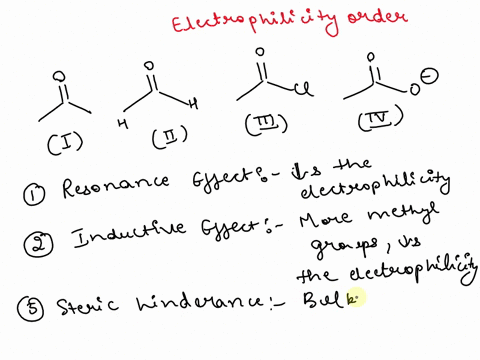 Electrophilicity order
O O O O
H H Cl O⊖
(I) (II) (III) (IV)
① Resonance Effect:- ↓s the
electrophilicity
② Inductive Effect:- More methyl
groups, ↓s
the electrophilicity
③ Steric hinderance:- Bulk